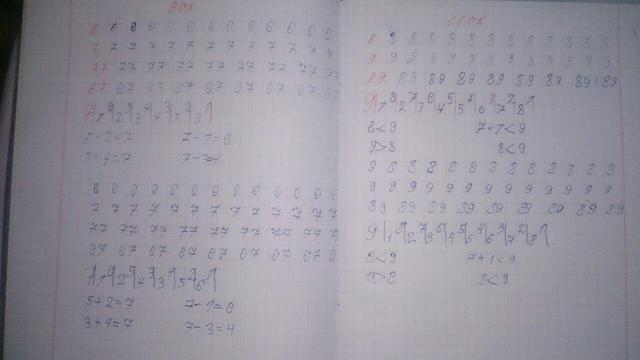 9 ох
6 7 6 6 6 6 6 6 6 6 6 6 6
7 77 7 7 7 7 7 7 7 7 7 7
77 77 77 77 77 77 77 77 77
67 67 67 67 67 67 67 67 67
5+2=7 7-1=6
3+4=7
6 6 6 6 6 6 6 6 6 6 6 6 6
7 7 7 7 7 7 7 7 7 7 7 7 7
77 77 77 77 77 77 77 77 77
67 67 67 67 67 67 67 67 67
5+2=7 7-1=6
3+4=7 7-3=4
11 ох
8 8 8 8 8 8 8 8 8 8 8 8 8
9 9 9 9 9 9 9 9 9 9 9 9 9
89 89 89 89 89 89 89 89 89
9 1 8 2 7 3 6 4 5 5 4 6 3 7 2 8 1
8<9 7+1<9
9>8 8<9
8 8 8 8 8 8 8 8 8 8 8 8 8
9 9 9 9 9 9 9 9 9 9 9 9 9
89 89 89 89 89 89 89 89 89
9 1 8 2 7 3 6 4 5 5 4 6 3 7 2 8 1
8<9 7+1<9
9>8 8<9